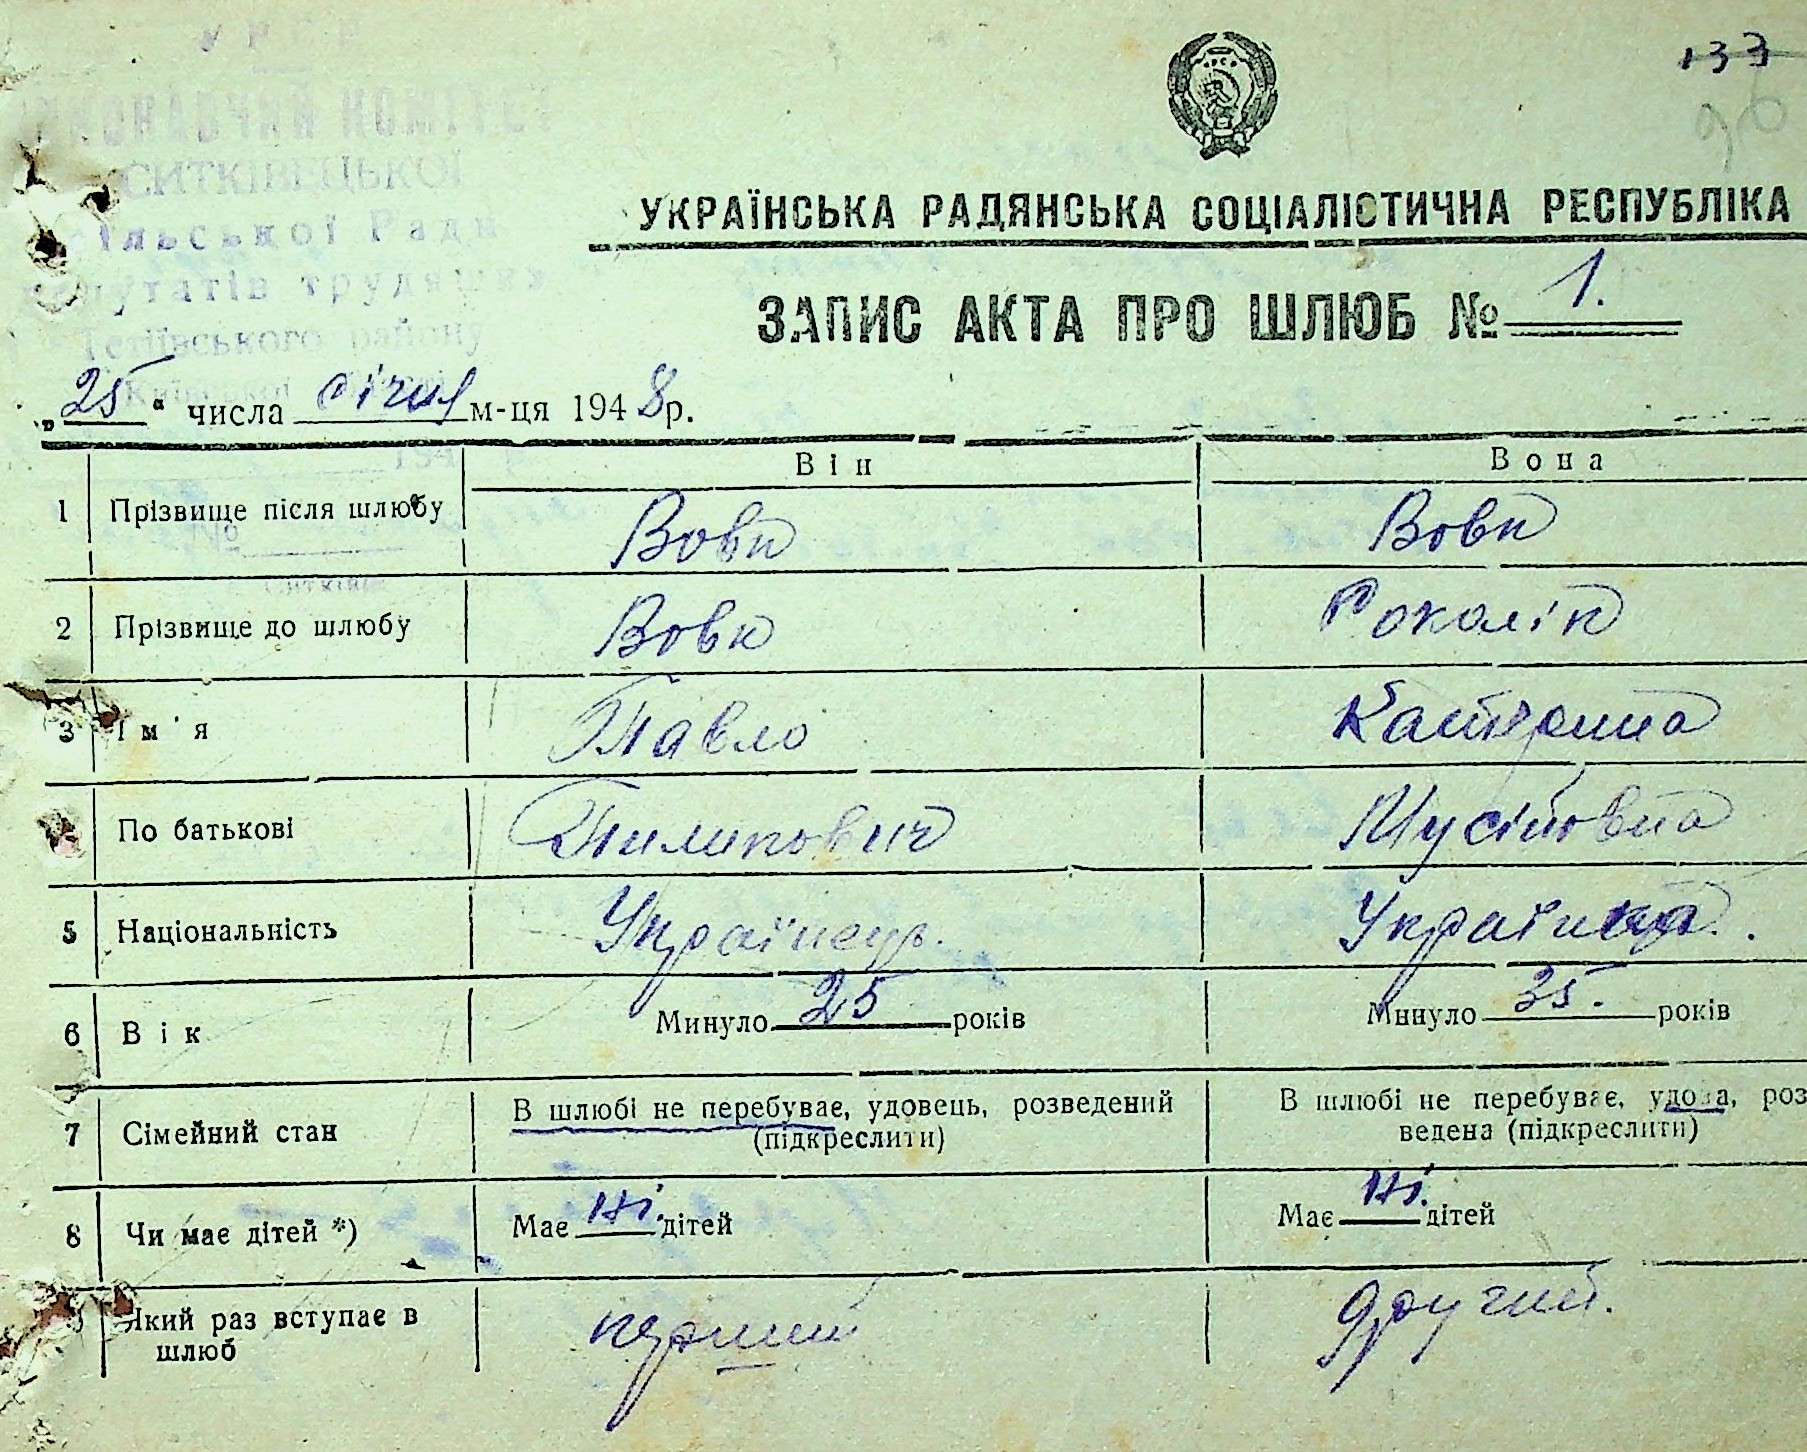 У Р С Р
ВИКОНАВЧИЙ КОМІТЕТ
СИТКІВЕЦЬКОЇ
сільської Ради
депутатів трудящих
Тетіївського району
Київської
133
96
УКРАЇНСЬКА РАДЯНСЬКА СОЦІАЛІСТИЧНА РЕСПУБЛІКА
ЗАПИС АКТА ПРО ШЛЮБ № 1.
„25“ числа січня м-ця 1948 р.
Він Вона
1 Прізвище після шлюбу Вовк Вовк
2 Прізвище до шлюбу Вовк Соколік
3 Ім'я Павло Катерина
По батькові Пилипович Мусіївна
5 Національність Українець. Українка.
6 Вік Минуло 25 років Минуло 35. років
7 Сімейний стан В шлюбі не перебуває, удовець, розведений (підкреслити) В шлюбі не перебуває, удова, роз
ведена (підкреслити)
8 Чи має дітей *) Має ні. дітей Має ні. дітей
9 Який раз вступає в перший другий.
шлюб